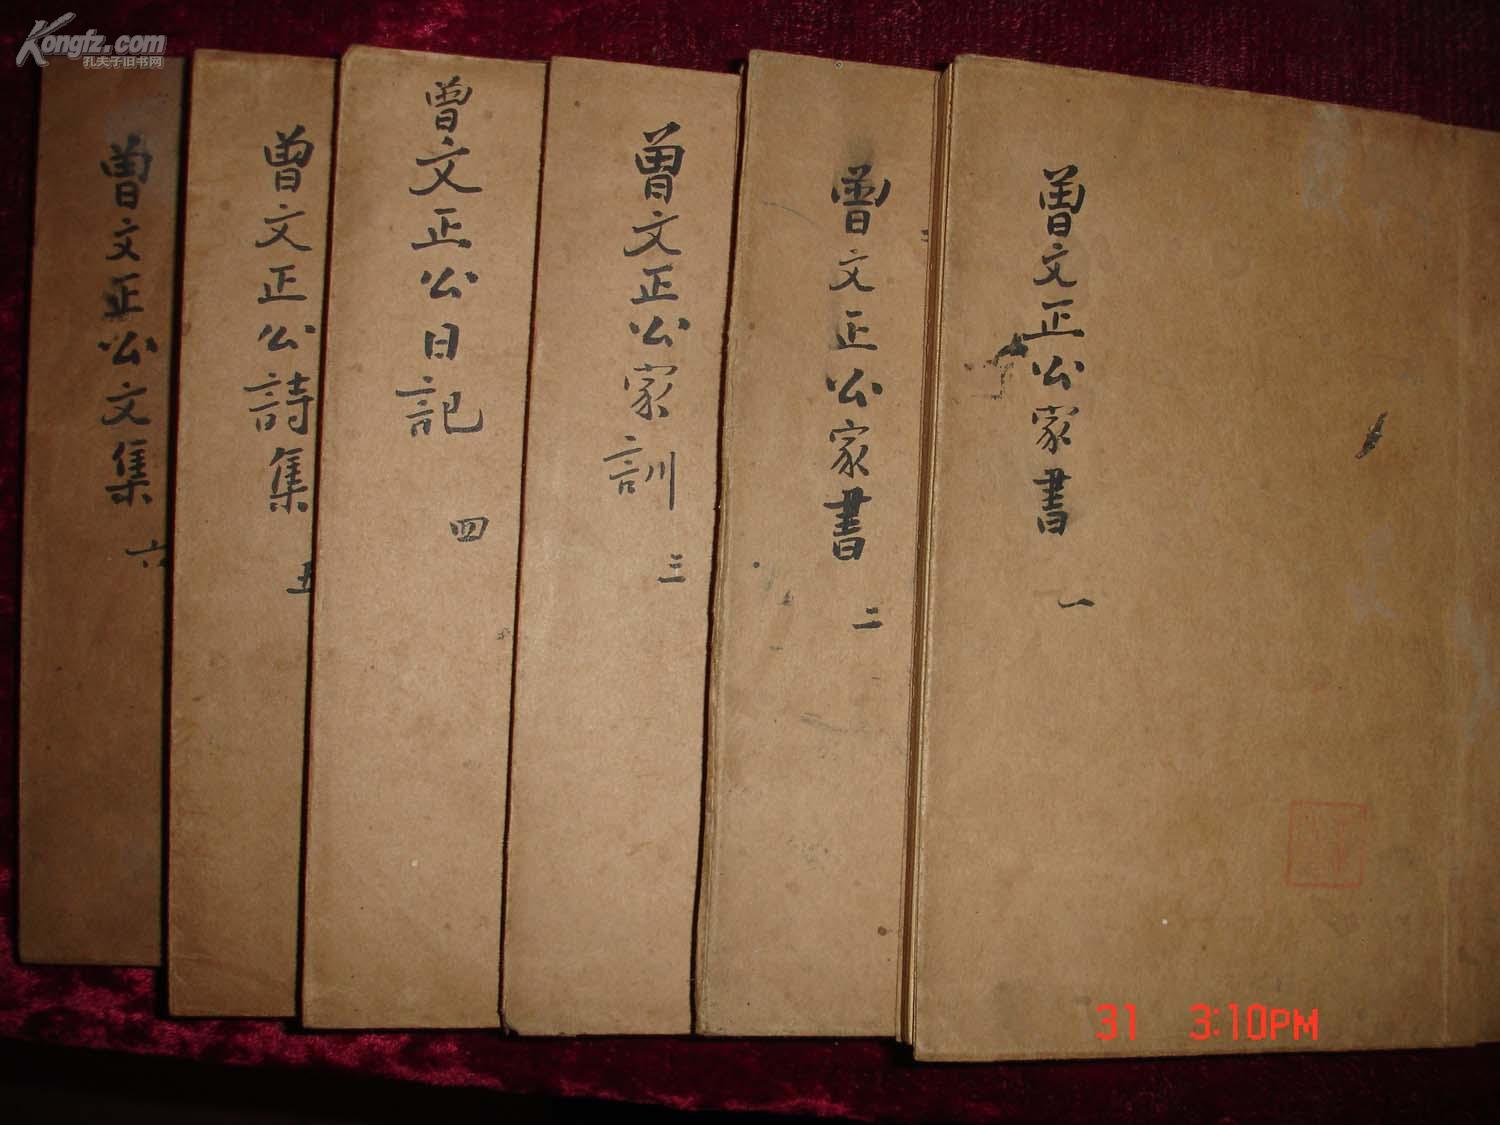 Kongfz.com
孔夫子旧书网
曾文正公家書 一
曾文正公家書 二
曾文正公家訓 三
曾文正公日記 四
曾文正公詩集 五
曾文正公文集 六
31 3:10PM